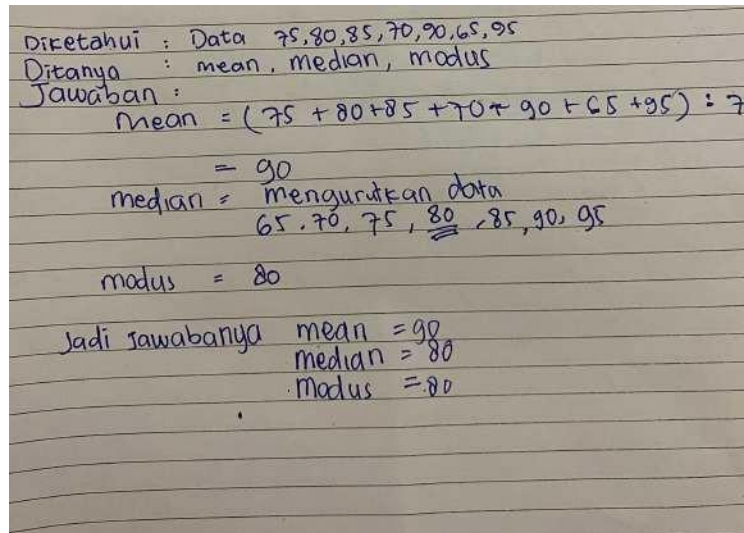 Diketahui : Data 75,80,85,70,90,65,95
Ditanya : mean, median, modus
Jawaban :
Mean = (75 + 80+85 +70+ 90 + 65 +95) : 7
= 90
median = mengurutkan data
65. 70, 75, 80 ,85, 90, 95
modus = 80
Jadi Jawabanya mean = 90
median = 80
modus = 80